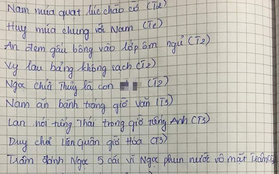 Nam múa quạt lúc chào cờ (T2)
Huy múa chung với Nam (T2)
An đem gấu bông vào lớp ôm ngủ (T2)
Vy lau bảng không sạch (T2)
Ngọc chửi Thùy là con (T2)
Nam ăn bánh trong giờ văn (T3)
Lan nói tiếng Thái trong giờ tiếng Anh (T3)
Duy chơi Liên Quân giờ Hóa (T3)
Trâm đánh Ngọc 5 cái vì Ngọc phun nước vô mặt Trâm